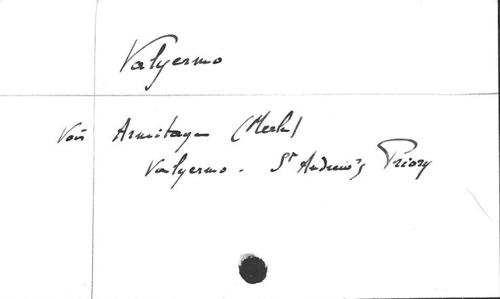 Valyermo
Voir Armitage (Merle)
Valyermo - St Andrew's Priory